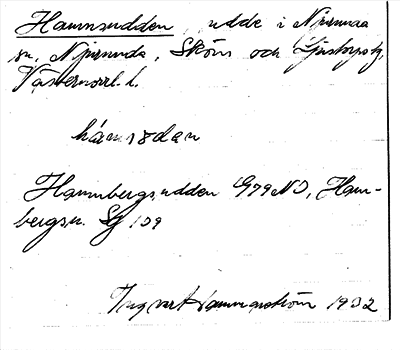 Hamnsudden, udde i Njurunda
sn, Njurunda, Sköns och Ljustorps tg,
Västernorrl. l.
hámsødan
Hamnbergsudden G79NO, Hamn-
bergsn. Sg 109
Ingvar Hammarström 1932